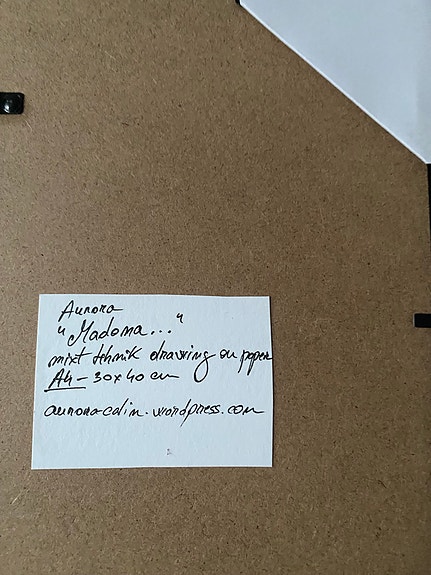 Aurora
"Madona..."
mixt tehnik drawing on paper
A4 - 30x40 cm
auroracalin.wordpress.com